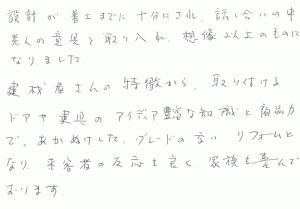 設計が着工までに十分にされ、話し合いの中
素人の意見を取り入れ、想像以上のものに
なりました。
建材屋さんの特徴から、取り付ける
ドアや建具のアイディア豊富な知識と商品力
で、あかぬけした、グレードの高い リフォームと
なり、来客者の反応も良く、家族も喜んで
おります。